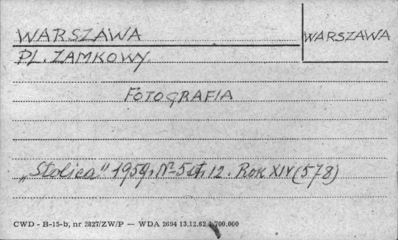 WARSZAWA
WARSZAWA
PL. ZAMKOWY
FOTOGRAFIA
„Stolica" 1959r. Nº 5 str. 12. Rok XIV (578)
CWD - B-15-b, nr 2827/ZW/P — WDA 2694 13.12.62 1.700.000